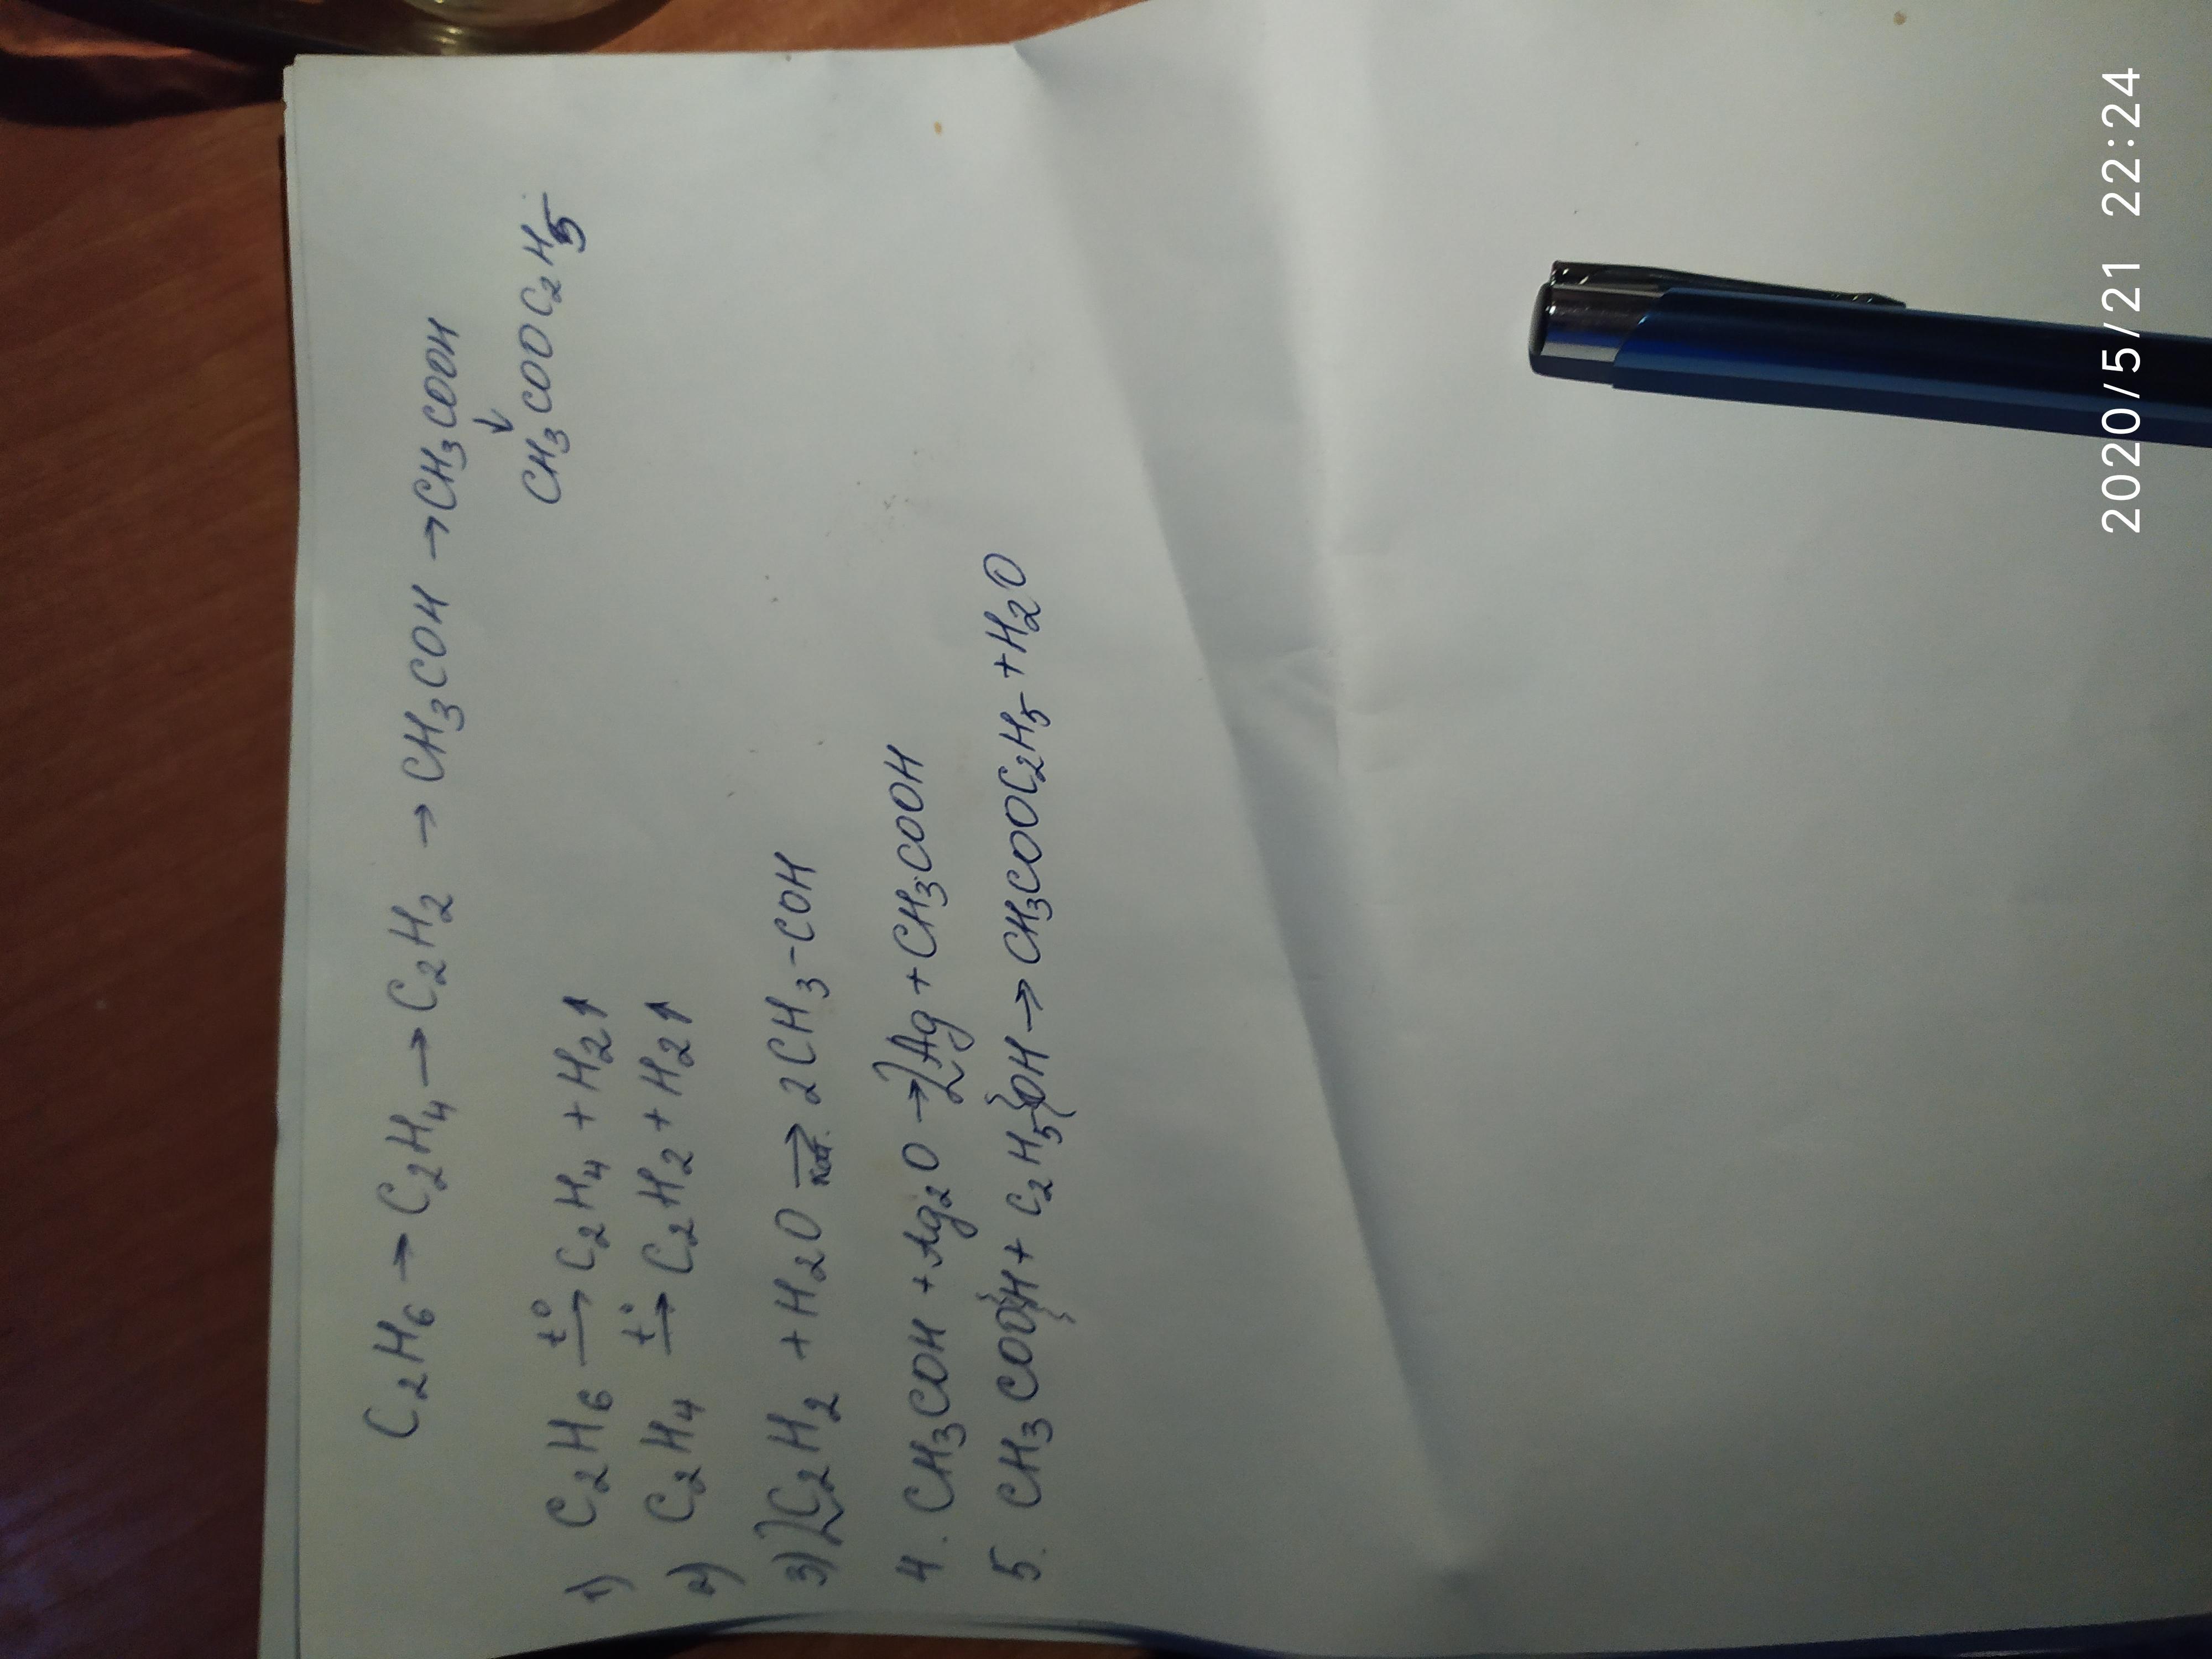 C₂H₆ → C₂H₄ → C₂H₂ → CH₃COH → CH₃COOH
↓
CH₃COOC₂H₅
1) C₂H₆ t°→ C₂H₄ + H₂↑
2) C₂H₄ t°→ C₂H₂ + H₂↑
3) 2C₂H₂ + H₂O кат.→ 2CH₃-COH
4. CH₃COH + Ag₂O → 2Ag + CH₃COOH
5. CH₃COOH + C₂H₅OH → CH₃COOC₂H₅ + H₂O
2020/5/21 22:24